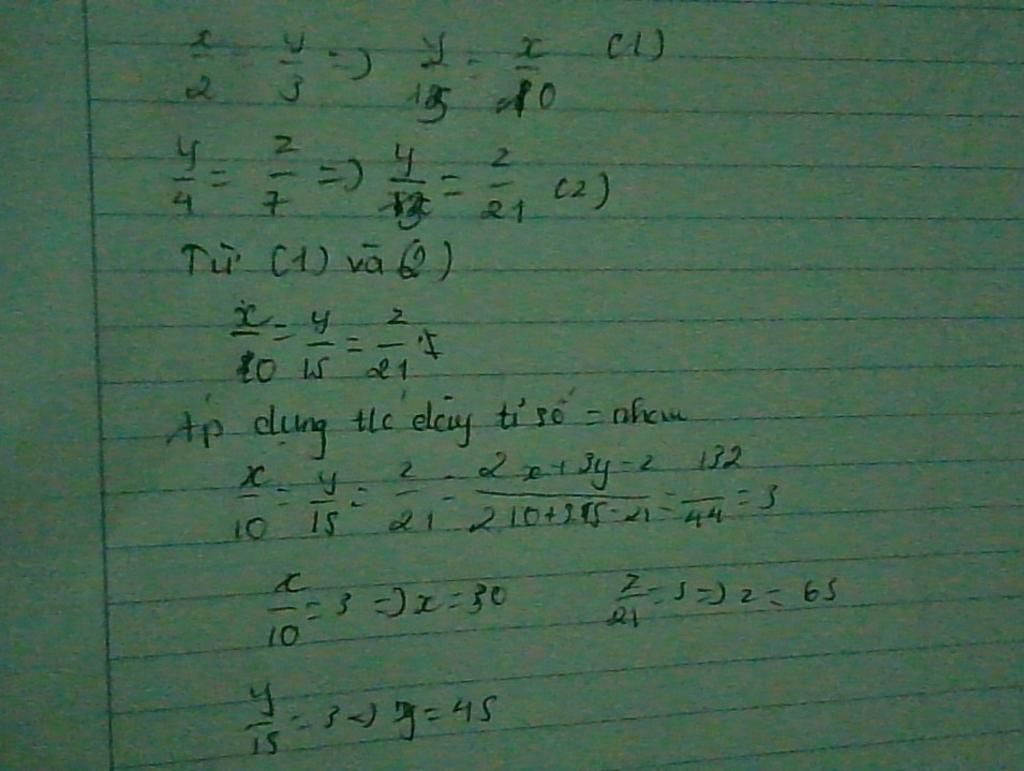 x/2 = y/3 => y/15 = x/10 (1)
y/4 = z/7 => y/ = z/21 (2)
Từ (1) và (2)
x/10 = y/15 = z/21
Áp dụng t/c dãy tỉ số = nhau
x/10 = y/15 = z/21 = 2x+3y-z/2.10+3.15-21 = 132/44 = 3
x/10 = 3 => x = 30 z/21 = 3 => z = 63
y/15 = 3 => y = 45